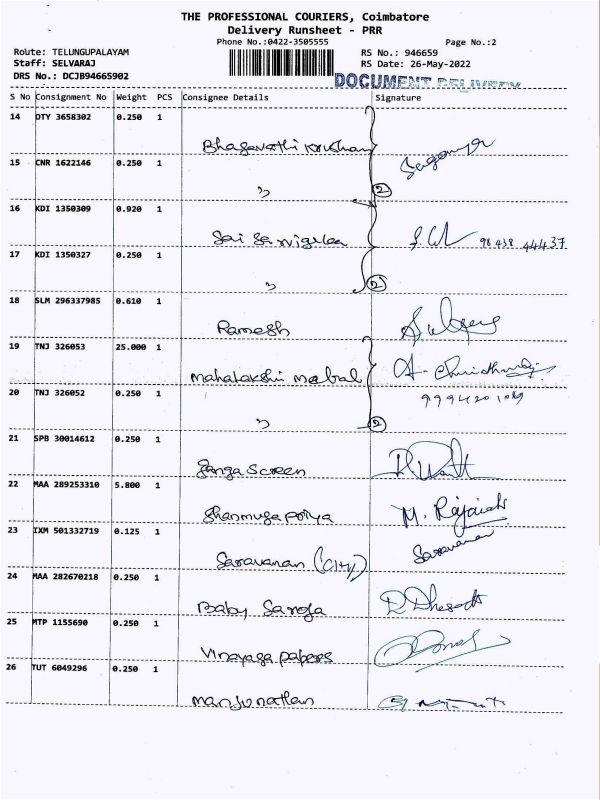 THE PROFESSIONAL COURIERS, Coimbatore
Delivery Runsheet - PRR
Phone No.:0422-3505555
Page No.:2
Route: TELUNGUPALAYAM
RS No.: 946659
Staff: SELVARAJ
RS Date: 26-May-2022
DRS No.: DCJB94665902
DOCUMENT DELIVERY
S No Consignment No Weight PCS Consignee Details Signature
14 DTY 3658302 0.250 1
Bhagavathi Krishnan
15 CNR 1622146 0.250 1
" 2
16 KDI 1350309 0.920 1
Sai 98438 44437
17 KDI 1350327 0.250 1
" 2
18 SLM 296337985 0.610 1
Ramesh
19 TNJ 326053 25.000 1
Mahalakshi
20 TNJ 326052 0.250 1
" 2
21 SPB 30014612 0.250 1
Ganga Screen
22 MAA 289253310 5.800 1
Shanmuga Priya M. Rajaiah
23 IXM 501332719 0.125 1
Saravanan (City) Saravanan
24 MAA 282670218 0.250 1
Baby Saroja
25 MTP 1155690 0.250 1
Vinayaga papers
26 TUT 6049296 0.250 1
Manjunathan